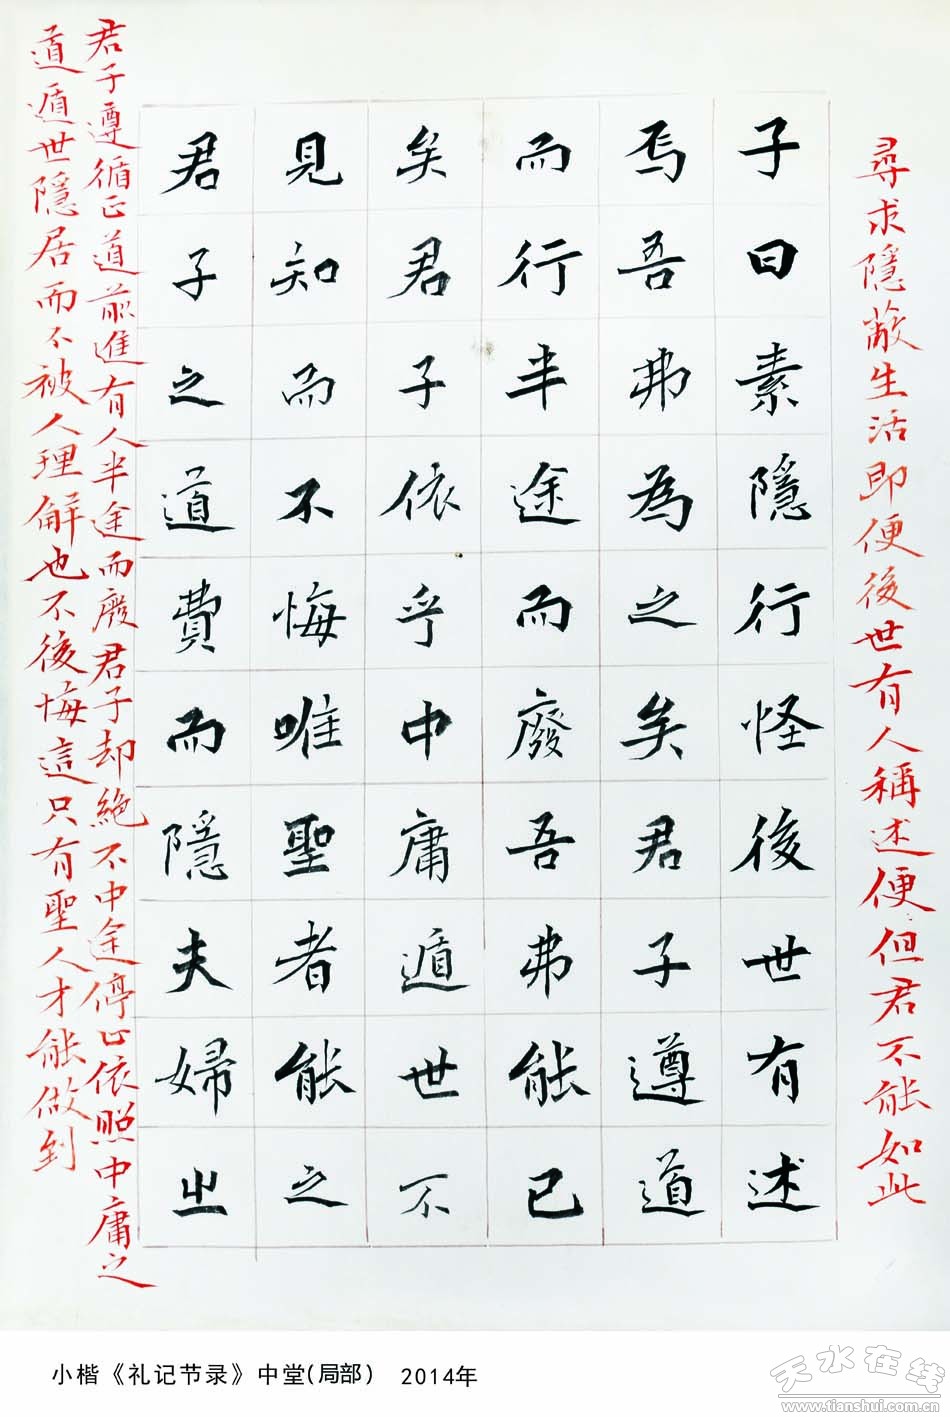 尋求隱蔽生活即便後世有人稱述便但君不能如此
子曰素隱行怪後世有述
焉吾弗為之矣君子遵道
而行半途而廢吾弗能已
矣君子依乎中庸遁世不
見知而不悔唯聖者能之
君子之道費而隱夫婦之
君子遵循正道前進有人半途而廢君子却絶不中途停止依照中庸之
道遁世隱居而不被人理解也不後悔這只有聖人才能做到
小楷《礼记节录》中堂(局部) 2014年
天水在线
www.tianshui.com.cn